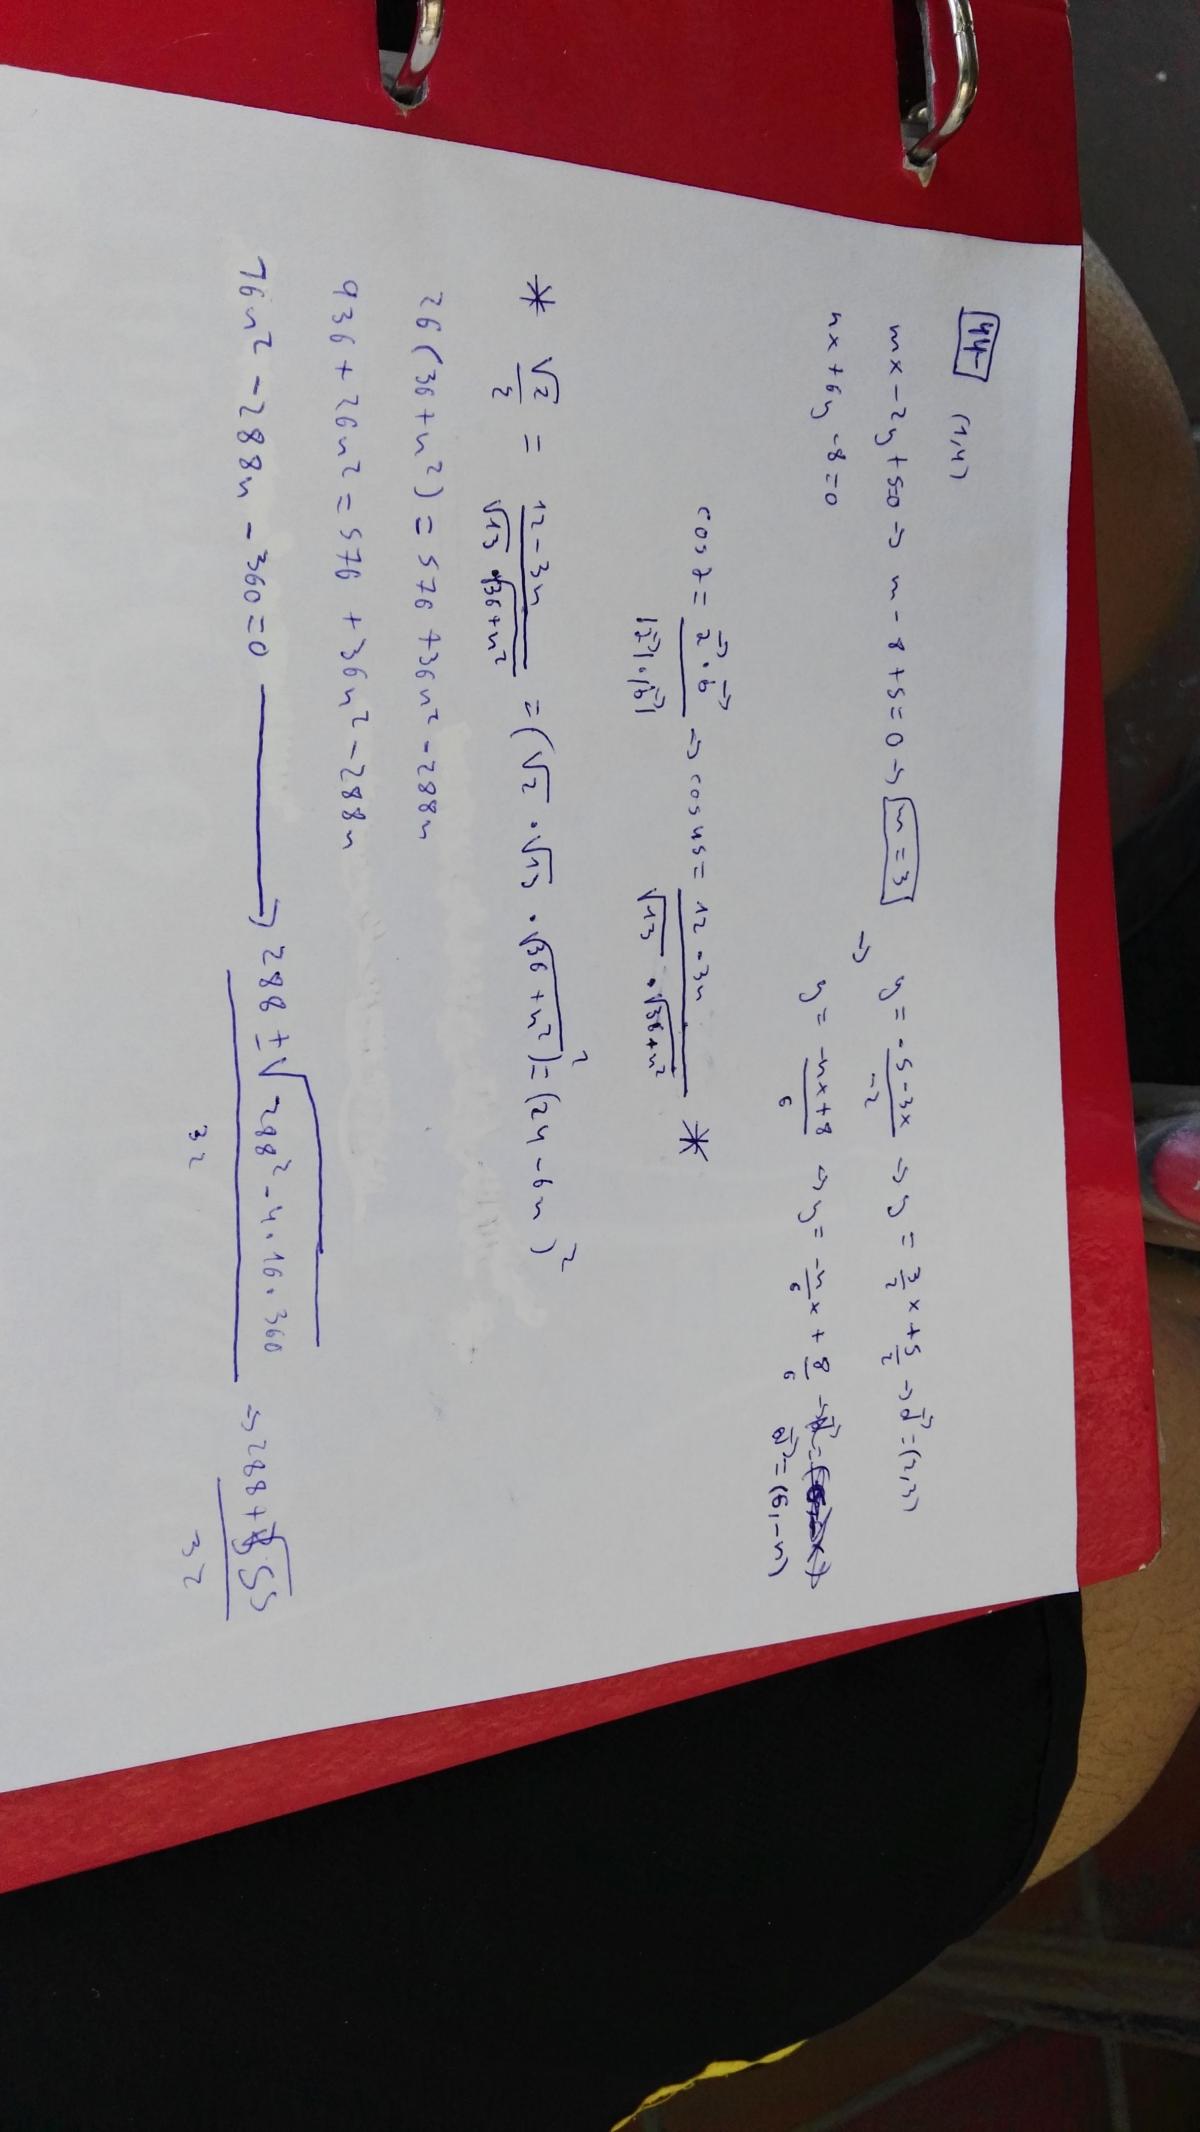 44- (1,4)
mx - 2y + 5=0 → m - 8 + 5 = 0 → m = 3 → y = -5-3x/-2 → y = 3/2 x + 5/2 → d⃗ = (2,3)
nx + 6y - 8 = 0
y = -nx+8/6 → y = -n/6 x + 8/6 →
d⃗ = (6,-n)
cos 2 = 2⃗ · b⃗ / |2⃗| · |b⃗| → cos 45 = 12 - 3n / √13 · √36+n² *
* √2/2 = 12-3n / √13 · √36+n² = (√2 · √13 · √36+n²)² = (24 - 6n)²
26(36+n²) = 576 + 36n² - 288n
936 + 26n² = 576 + 36n² - 288n
16n² - 288n - 360 = 0 → 288 ± √288² - 4·16·360 / 32 → 288 +
32